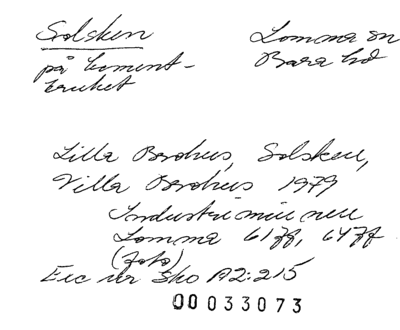 Solsken
på Cement-
bruket
Lomma sn
Bara hd
Lilla Brohus, Solsken,
Villa Brohus 1979
Industriminnen
Lomma 61ff, 64ff
(foto)
Exc nr Sko A2:215
00033073